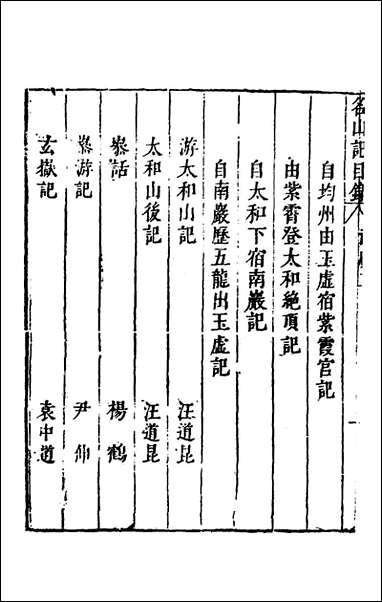 名山記目錄
自均州由玉虛宿紫霞宮記
由紫霄登太和絶頂記
自太和下宿南巖記
自南巖歷五龍出玉虛記
游太和山記 汪道昆
太和山後記 汪道昆
叅話 楊鶴
叅游記 尹伸
玄嶽記 袁中道